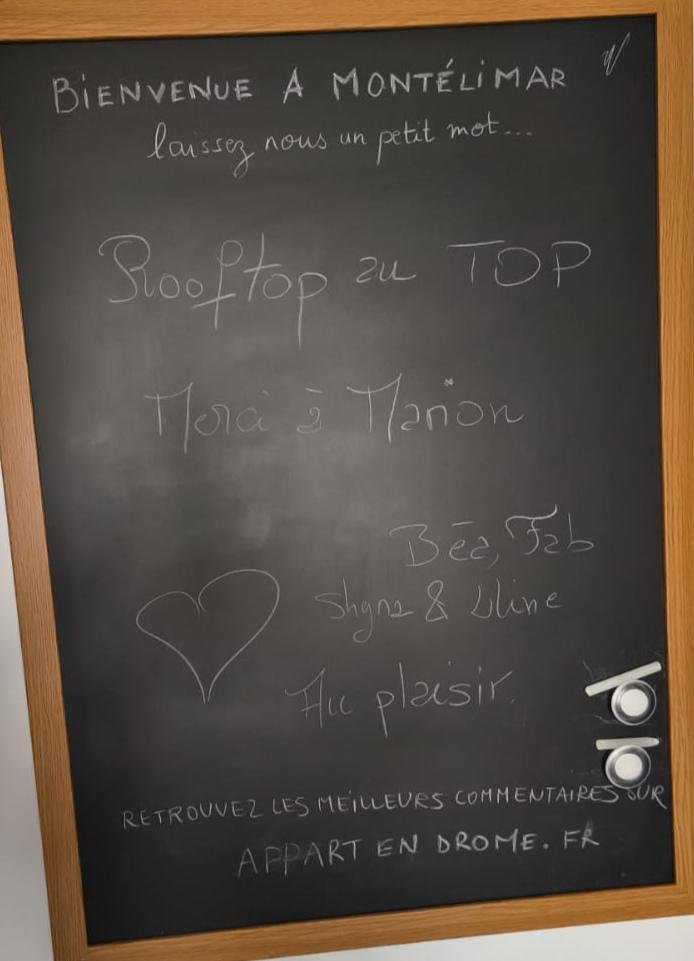 BIENVENUE A MONTÉLIMAR
laissez nous un petit mot...
Rooftop au TOP
Merci à Manon
Béa, Fab
&
Au plaisir.
RETROUVEZ LES MEILLEURS COMMENTAIRES SUR
APPART EN DROME. FR